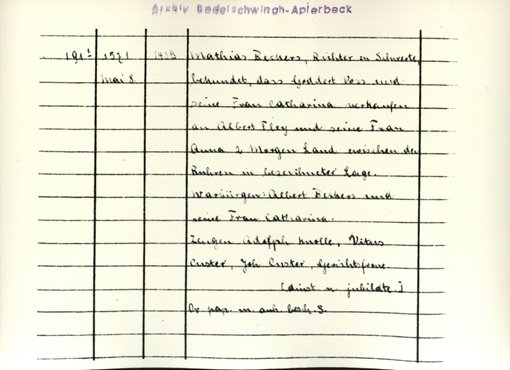 Archiv Bodelschwingh-Aplerbeck
191¹ 1571 Mathias Beckers, Richter in Schwerte,
Mai 8. bekundet, dass Goddert Voss und
seine Frau Catharina verkaufen
an Albert Fley und seine Frau
Anna 2 Morgen Land zwischen der
Ruhren in bezeichneter Lage.
Warbürgen: Albert Beckers und
seine Frau Catharina.
Zeugen Adolph Knolle, Vitus
Custer, Joh Custer, Gerichtsfrone.
[dinst n. jubilate]
Or. pap. m. anh. besch. S.